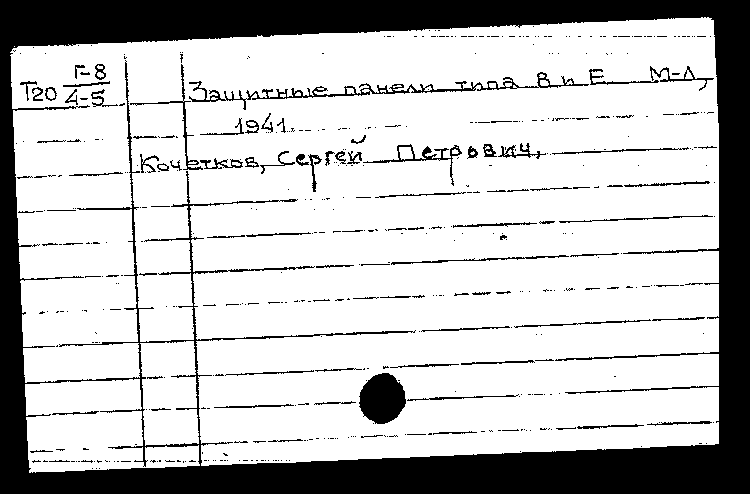 Т20 Г-8
4-5
Защитные панели типа В и Е М-Л,
1941.
Кочетков, Сергей Петрович,